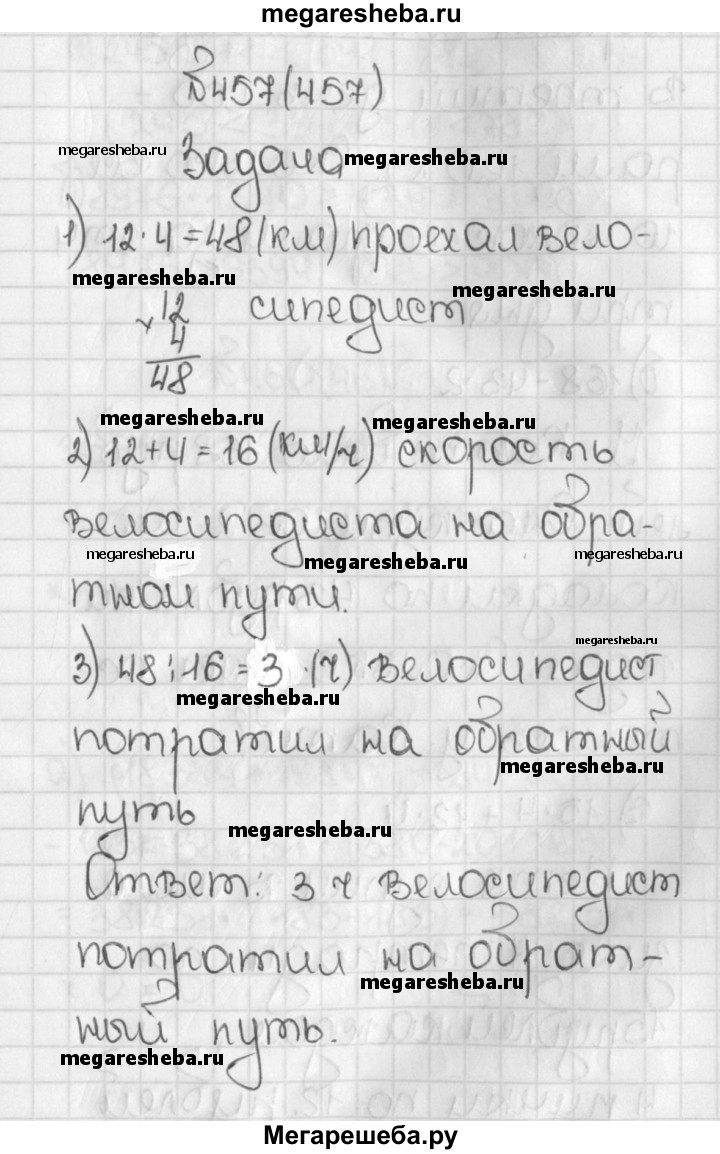 megaresheba.ru
№457(457)
megaresheba.ru Задача megaresheba.ru
1) 12·4=48(км) проехал вело-
megaresheba.ru megaresheba.ru
×12 сипедист
4
48
megaresheba.ru megaresheba.ru
2) 12+4=16(км/ч) скорость
велосипедиста на обра-
megaresheba.ru megaresheba.ru megaresheba.ru
тном пути.
megaresheba.ru
3) 48:16=3 (ч) велосипедист
megaresheba.ru
потратил на обратный
megaresheba.ru
путь
megaresheba.ru
Ответ: 3 ч велосипедист
потратил на обрат-
megaresheba.ru
ный путь.
megaresheba.ru
Мегарешеба.ру